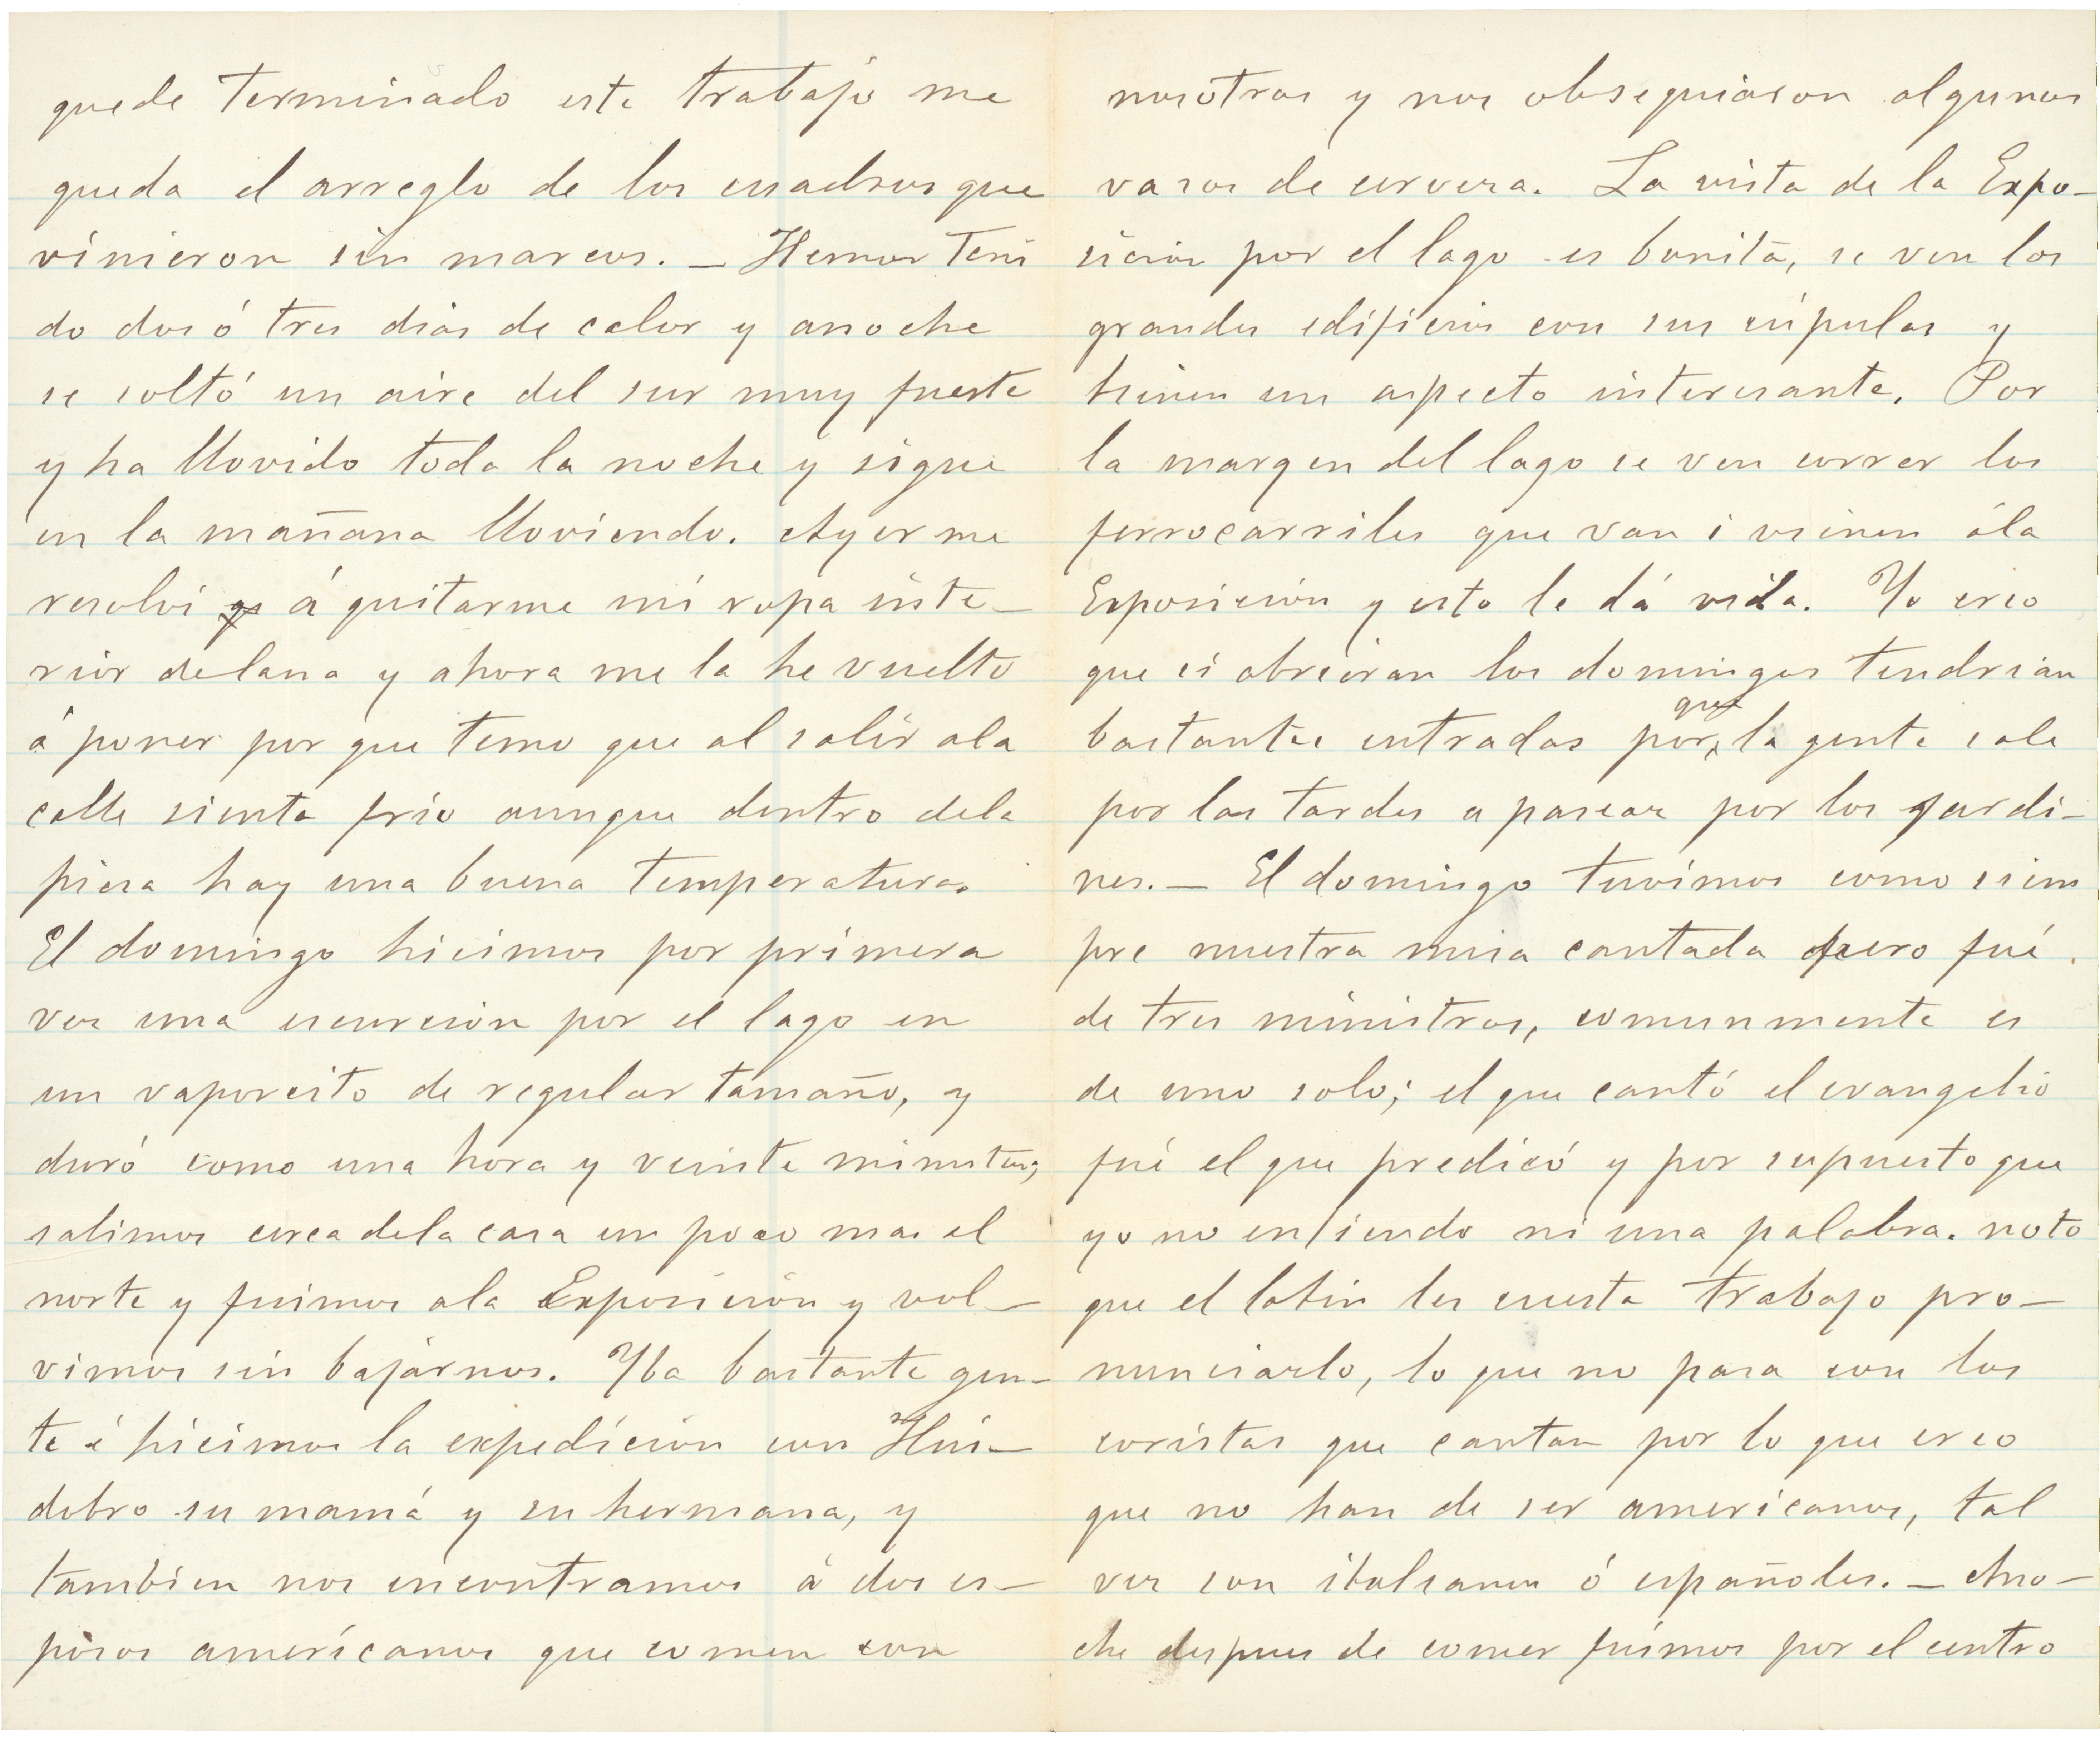 quede terminado este trabajo me
queda el arreglo de los cuadros que
vinieron sin marcos. _ Hemos teni
do dos ó tres dias de calor y anoche
se soltó un aire del sur muy fuerte
y ha llovido toda la noche y sigue
en la mañana lloviendo. Ayer me
resolví á quitarme mi ropa inte_
rior de lana y ahora me la he vuelto
á poner por que temo que al salir ala
calle sienta frío aunque dentro dela
piesa hay una buena temperatura.
El domingo hicimos por primera
ves una escursion por el lago en
un vaporcito de regular tamaño, y
duró como una hora y veinte minutos,
salimos cerca dela casa un poco mas al
norte y fuimos ala Exposición y vol_
vimos sin bajárnos. Yba bastante gen_
te é hicimos la expedición con Hil_
debro su mamá y su hermana, y
tambien nos encontramos á dos es_
posos américanos que comen con
nosotros y nos obsequiáron algunos
vasos de cervesa. La vista de la Expo_
sición por el lago es bonita, se ven los
grandes edificios con sus cúpulas y
tienen un aspecto interesante. Por
la margen del lago se ven correr los
ferrocarriles que van i vienen ála
Exposición y esto le dá vida. Yo creo
que si abrieran los domingos tendrian
bastantes entradas por que la gente sale
por las tardes a pasear por los jardi_
nes. _ El domingo tuvímos como siem
pre nuestra misa cantada pero fué
de tres ministros, comunmente es
de uno solo; el que cantó el evangelio
fué el que predicó y por supuesto que
yo no entiendo ni una palabra. noto
que el latin les cuesta trabajo pro_
nunciarlo, lo que no pasa con los
coristas que cantan por lo que creo
que no han de ser americanos, tal
ves son italianos ó españoles. _ Ano_
che despues de comer fuimos por el centro